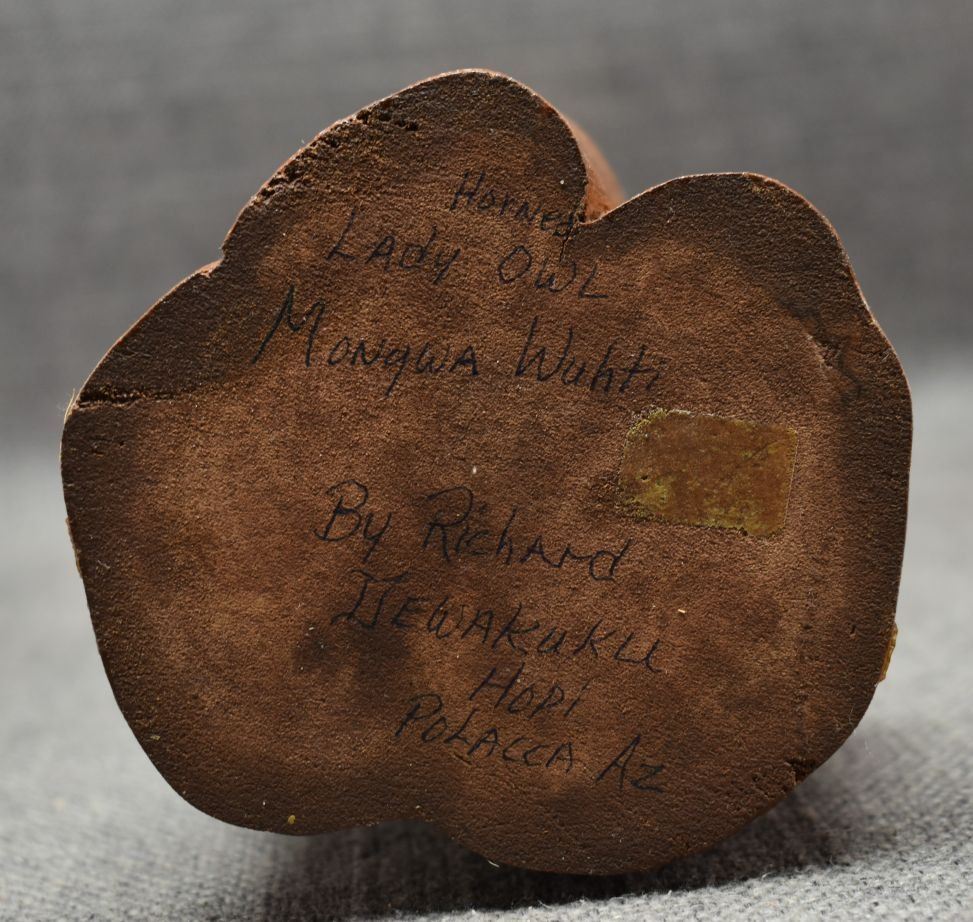 Horned
Lady Owl
Mongwa Wuhti
By Richard
Dewakuku
Hopi
Polacca Az